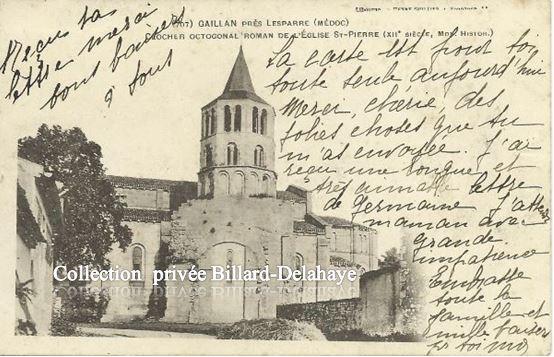 (707) GAILLAN PRÈS LESPARRE (MÉDOC)
CLOCHER OCTOGONAL ROMAN DE L'ÉGLISE ST-PIERRE (XIIe SIÈCLE, MON. HISTOR.)
Reçu ta
lettre merci
bons baisers
à tous
La carte est pour toi
toute seule aujourd'hui
Merci, chérie, des
jolies choses que tu
m'as envoyée. J'ai
reçu une longue et
très aimable lettre
de Germaine J'attends
maman avec
grande
impatience
Embrasse
toute la
famille et
mille baisers
toi
Collection privée Billard-Delahaye